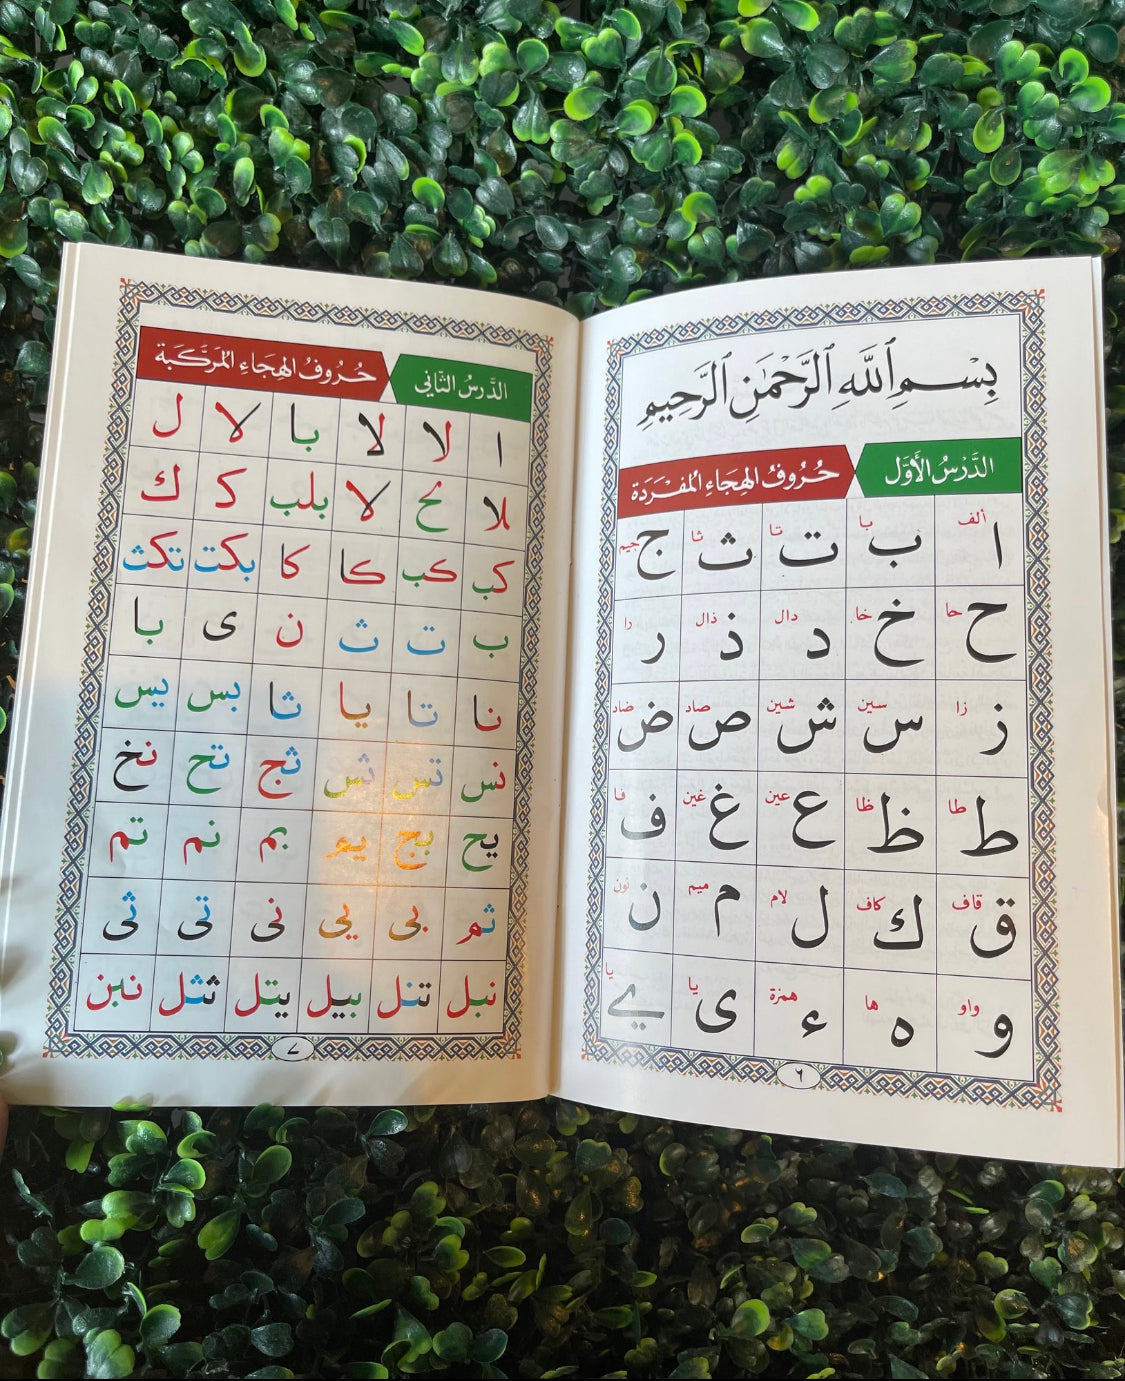 بِسْمِ ٱللَّهِ ٱلرَّحْمَٰنِ ٱلرَّحِيمِ
الدَّرْسُ الْأَوَّل حُرُوفُ الهِجَاءِ المُفْرَدَة
ا ألف ب با ت تا ث ثا ج جيم
ح حا خ خا د دال ذ ذال ر را
ز زا س سين ش شين ص صاد ض ضاد
ط طا ظ ظا ع عين غ غين ف فا
ق قاف ك كاف ل لام م ميم ن نون
و واو ه ها ء همزة ى يا ے يا
٦
الدَّرسُ الثَّاني حُرُوفُ الهِجَاءِ المُرَكَّبَة
ا لا لا با لا ل
بلا لح لا بلب ك ك
كب كب كا كا بكت تكث
ب ت ث ن ى با
نا تا يا ثا بس يس
نس تس ثس ثج تح نخ
يح بج يم بم نم تم
ثم بى يى نى تى ثى
نبل تنل بيل يتل ثثل نبن
٧